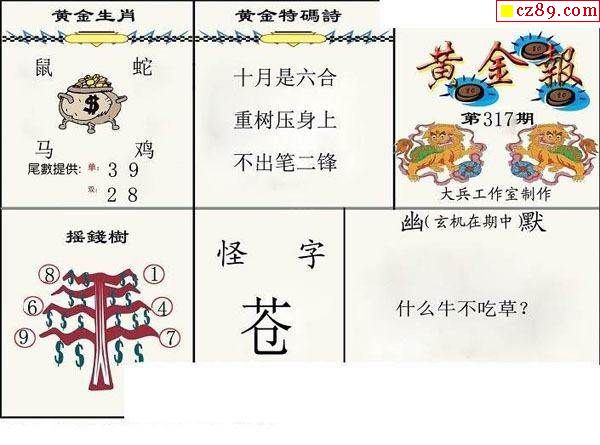 cz89.com
黄金生肖
鼠 蛇
$
马 鸡
尾數提供: 单: 3 9
双: 2 8
黄金特碼詩
十月是六合
重树压身上
不出笔二锋
黄金報
第317期
大兵工作室制作
摇錢樹
⑧ ①
⑥ ④
⑨ ⑦
$ $ $ $ $ $
怪 字
苍
幽(玄机在期中)默
什么牛不吃草?